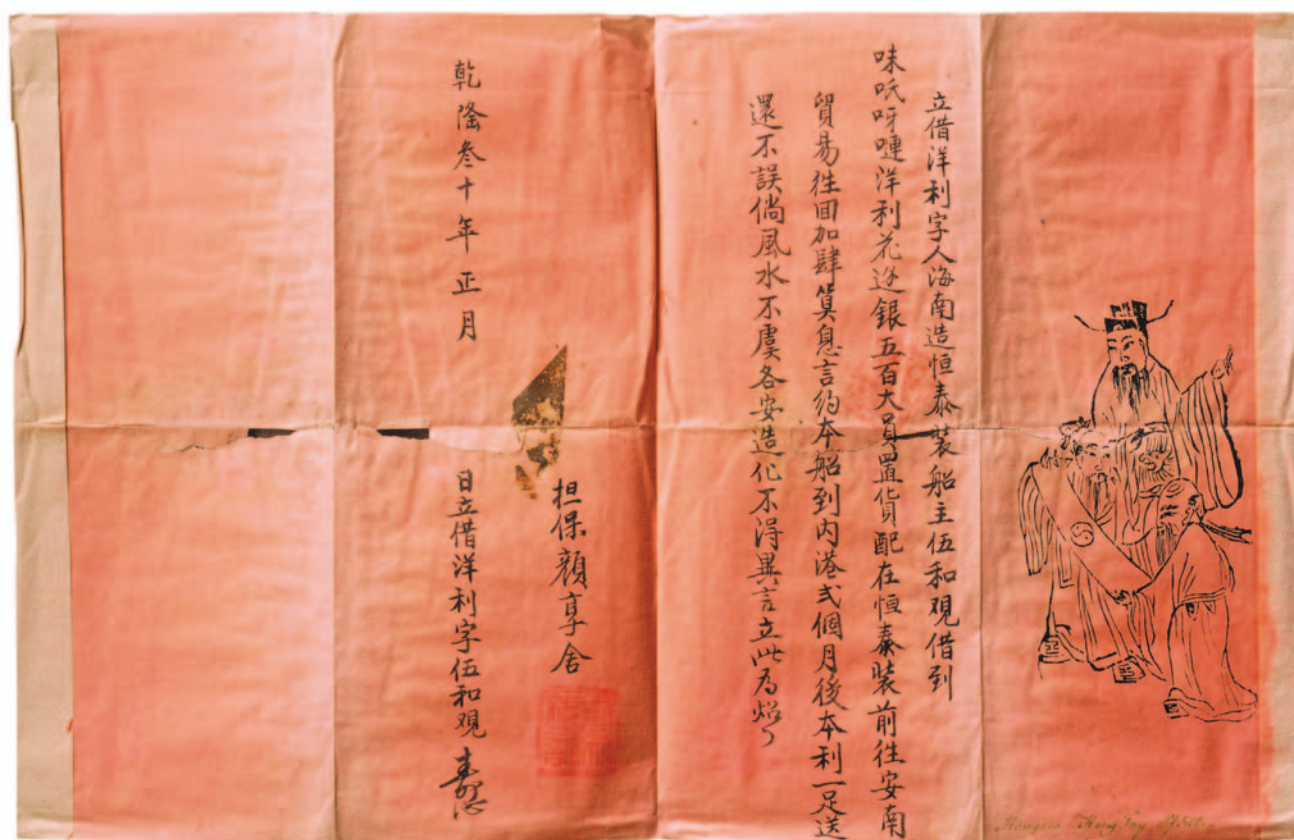 立借洋利字人海南造恒泰裝船主伍和观借到
味呅呀嗹洋利花边銀五百大員置貨配在恒泰裝前往安南
貿易往回加肆算息言約本船到内港弍個月後本利一足送
還不誤倘風水不虞各安造化不得異言立此为炤
担保顏享舍
乾隆叁十年正月
日立借洋利字伍和观